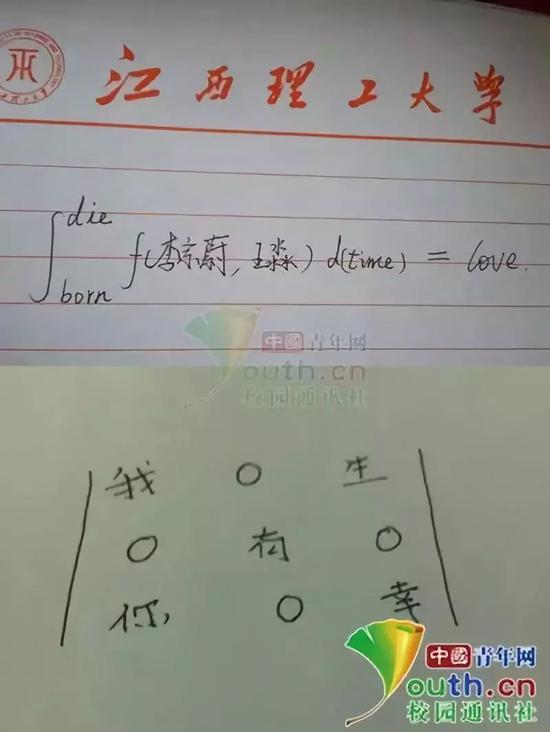 江西理工大学
die
∫ f(李宗蔚, 王淼) d(time) = love.
born
中國青年网
outh.cn
校园通讯社
我 0 生
0 有 0
你, 0 幸
中國青年网
outh.cn
校园通讯社